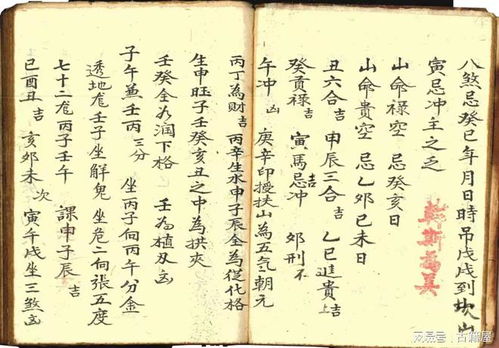 八煞忌癸巳年月日時吊戊戌到坎山
寅忌冲主之乏
山命祿空 忌癸亥日
山命貴空 忌乙卯已未日
丑六合吉 申辰三合吉 乙巳進貴上吉
癸貢祿吉 寅馬吉忌冲 卯刑不
午冲凶 庚辛印授挟山為五氣朝元
丙丁為財吉 丙辛生水申子辰全為從化格
生申旺子壬癸亥丑之中為拱夾
壬癸全為润下格 壬為植及凶
子午兼壬丙三分 坐丙子向丙午分金
透地龙壬子 坐觧兒 坐危二向張五度
七十二龙丙子壬午 課申子辰吉
巳酉丑吉 亥卯未次 寅午戌坐三煞凶
古籍屋